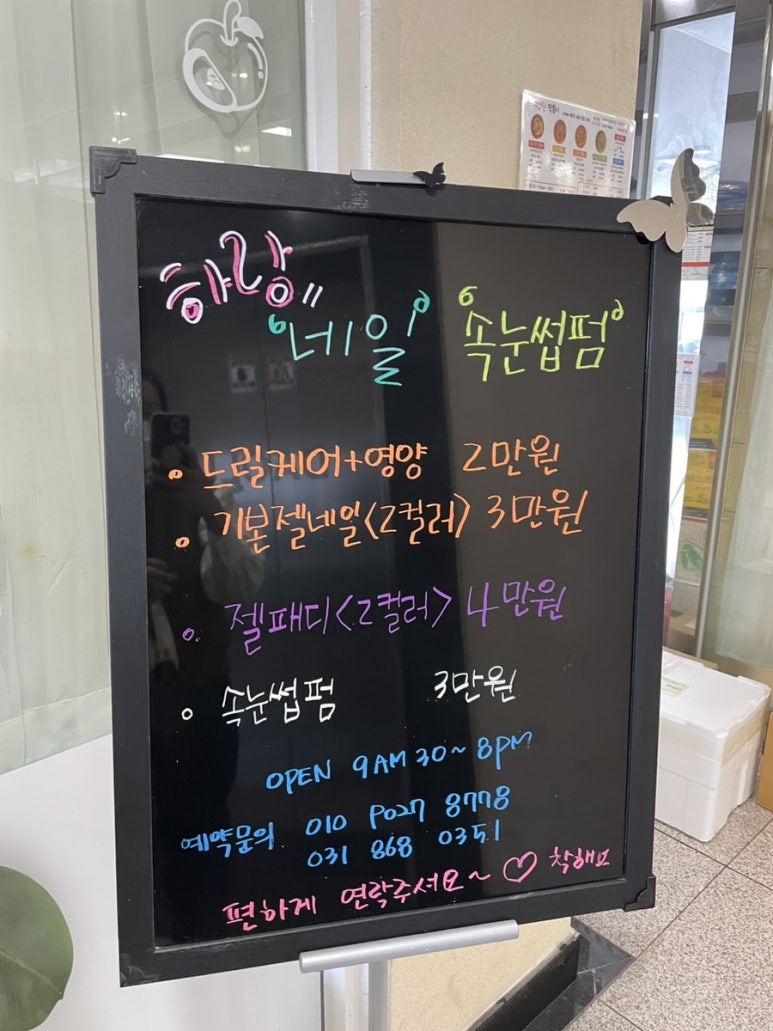 하랑"
네일 속눈썹펌
드릴케어+영양 2만원
기본젤네일<2컬러> 3만원
젤패디<2컬러> 4만원
속눈썹펌 3만원
OPEN 9AM 30~8PM
예약문의 010 9027 8778
031 868 0351
편하게 연락주셔요~♡ 착해요